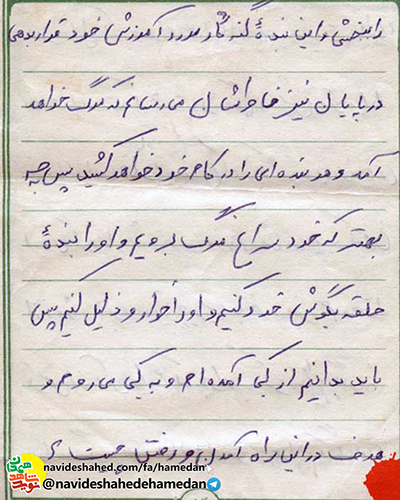 را ببخشی و این بندهٔ گنه کار مورد آمرزش خود قرار بدهی
در پایان نیز خاطر نشان می رسانم که مرگ خواهد
آمد و هر بنده ای را در کام خود خواهد کشید پس چه
بهتر که خود سراغ مرگ برویم و او را بندهٔ
حلقه بگوش خود کنیم و او را خوار و ذلیل کنیم پس
باید بدانیم از کی آمده ام و به کی می روم و
هدف در این راه آمدن و رفتن چیست ؟
navideshahed.com/fa/hamedan
@navideshahedehamedan